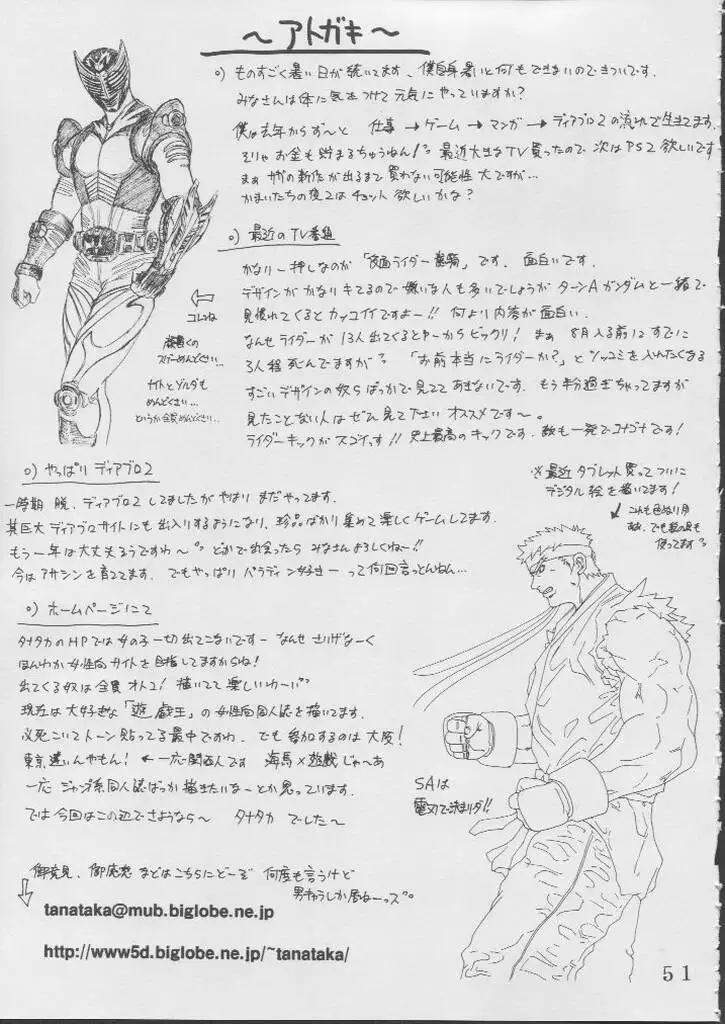 ～アトガキ～
○）ものすごく暑い日が続いてます、僕自身暑いと何もできないのできついです。
みなさんは体に気をつけて元気にやっていますか?
僕は去年からず～と 仕事→ゲーム→マンガ→ディアブロ2の流れで生きてます。
そりゃお金も貯まるちゅうねん! 最近大きなTV買ったので次はPS2欲しいです
まぁ サガの新作が出るまで買わない可能性大ですが…
かまいたちの夜2はチョット欲しいかな?
○）最近のTV番組
かなり一押しなのが「仮面ライダー龍騎」です。面白いです。
デザインがかなりキてるので嫌いな人も多いでしょうがターンAガンダムと一緒で
見慣れてくるとカッコイイですよー!! 何より内容が面白い。
なんせライダーが13人出てくるとゆーからビックリ! まぁ 8月入る前にすでに
3人程死んでますが 「お前本当にライダーか?」とツッコミを入れたくなる
すごいデザインの奴らばっかで見ててあきないです。もう半分過ぎちゃってますが
見たことない人はぜひ見て下さい オススメです～。
ライダーキックがスゴイっす!! 史上最高のキックです。敵も一発でコナゴナです!
⇦コレね
龍騎の
めんどくさい…
ナイトとゾルダも
めんどくさい…
というか全員めんどくさい…
○）やっぱりディアブロ2
一時期 脱、ディアブロ2 してましたがやはり まだやってます。
某巨大ディアブロサイトにも出入りするようになり、珍品ばかり集めて楽しくゲームしてます。
もう一年は大丈夫そうですわ～ どこかで出会ったら みなさんよろしくねー!!
今はアサシンを育ててます、でもやっぱり パラディン好きー って何回言っとんねん…
※最近 タブレット買って ついに
デジタル絵を描いてます!
使ってます
○）ホームページにて
タナタカのHPでは女の子一切出てこないですー なんせ さいげなーく
ほんわか女性向サイトを目指してますからね!
出てくる奴は全員オトコ! 描いてて楽しいわー
現在は大好きな「遊戯王」の女性向同人誌を描いてます。
必死こいてトーン貼ってる最中ですわ、でも参加するのは大阪!
東京遠いんやもん! ←一応関西人です 海馬×遊戯じゃ～あ
一応 ジャンプ系同人誌ばっか描きたいなーとか思っています。
では今回はこの辺でさようなら～ タナタカ でした～
SAは
電刃で決まりダ!!
御意見、御感想 などはこちらにどーぞ 何度も言うけど
男キャラしか居ねーっス
tanataka@mub.biglobe.ne.jp
http://www5d.biglobe.ne.jp/~tanataka/
51